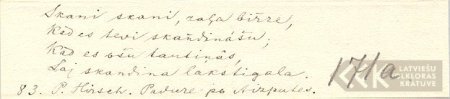 Skani skani, zaļa birze,
Kad es tevi skandināšu;
Kad es ošu tautiņās,
Lai skandina lakstigala.
83. P. Hirsch. Padure pa Aizputes.
171a
LATVIEŠU
FOLKLORAS
KRĀTUVE